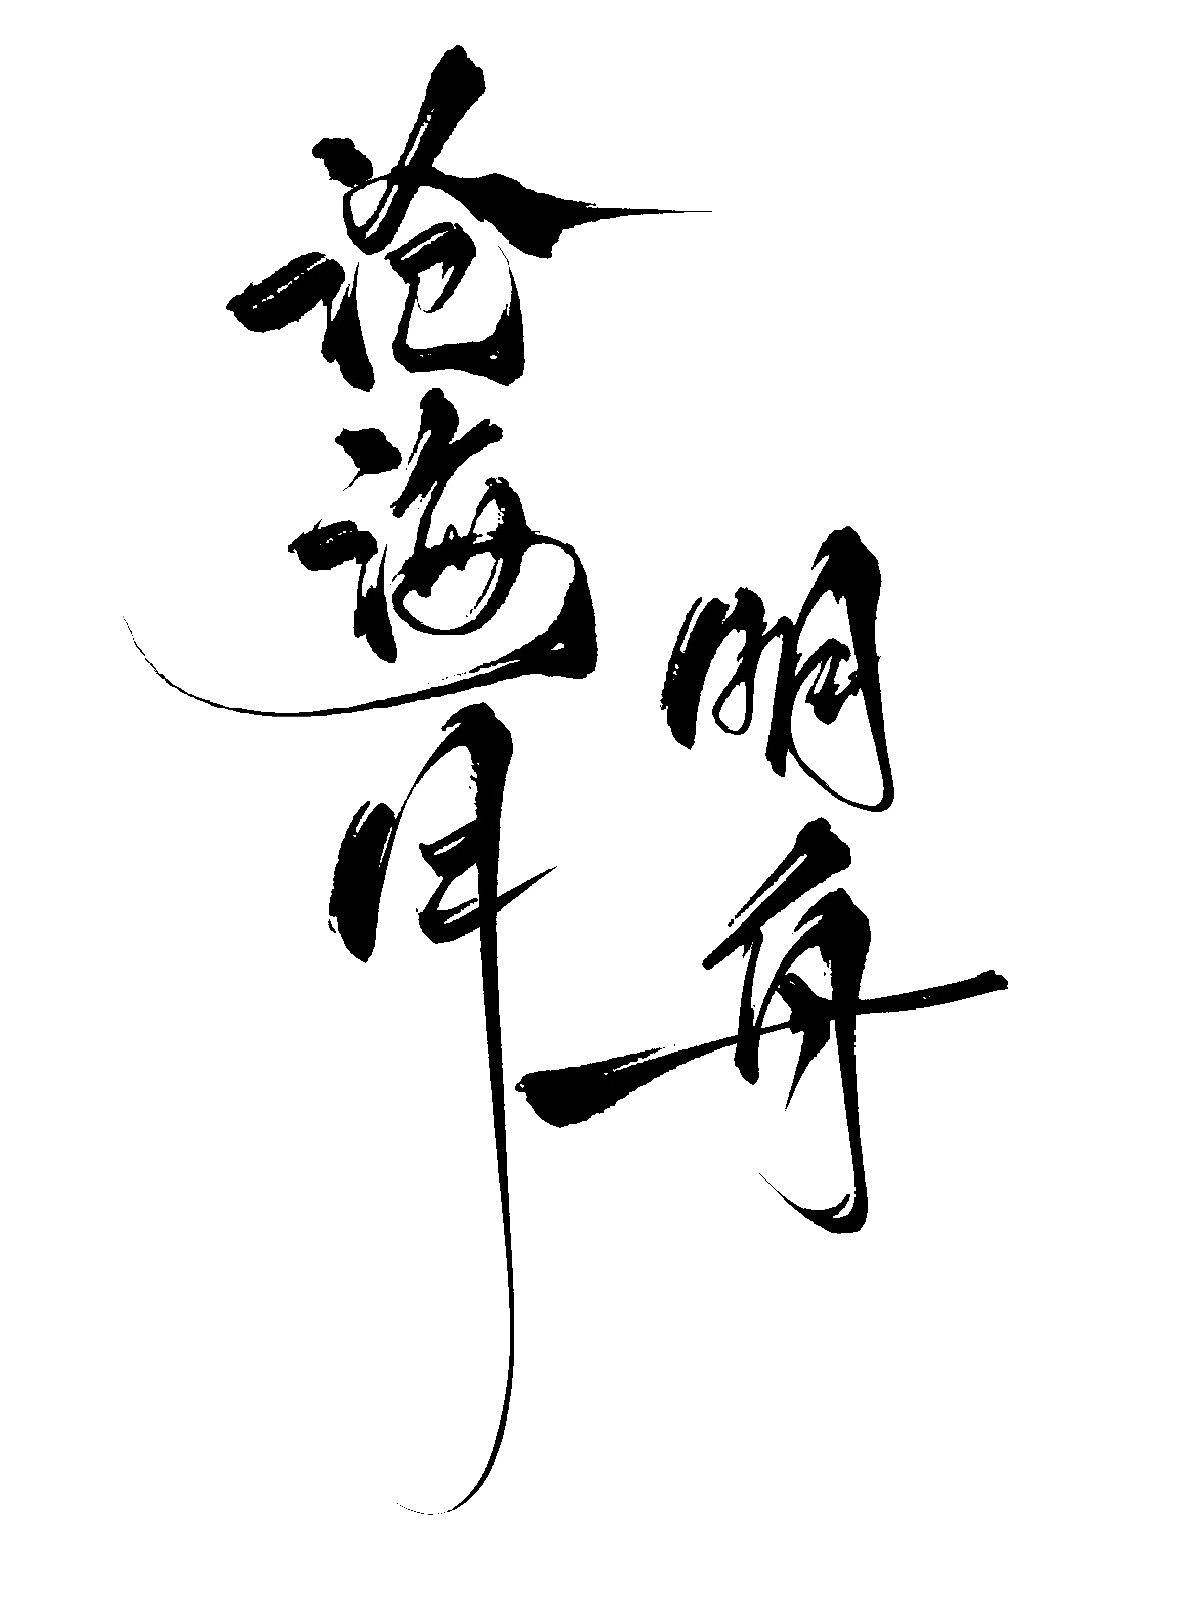 沧海月
明舟